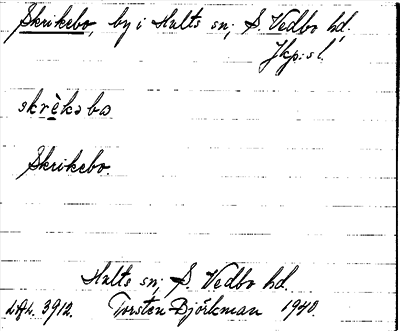 Skrikebo, by i Hults sn, S. Vedbo hd.
Jkp:s l.
skrèkəbo
Skrikebo.
Hults sn, S. Vedbo hd.
Torsten Björkman 1940.
3912.